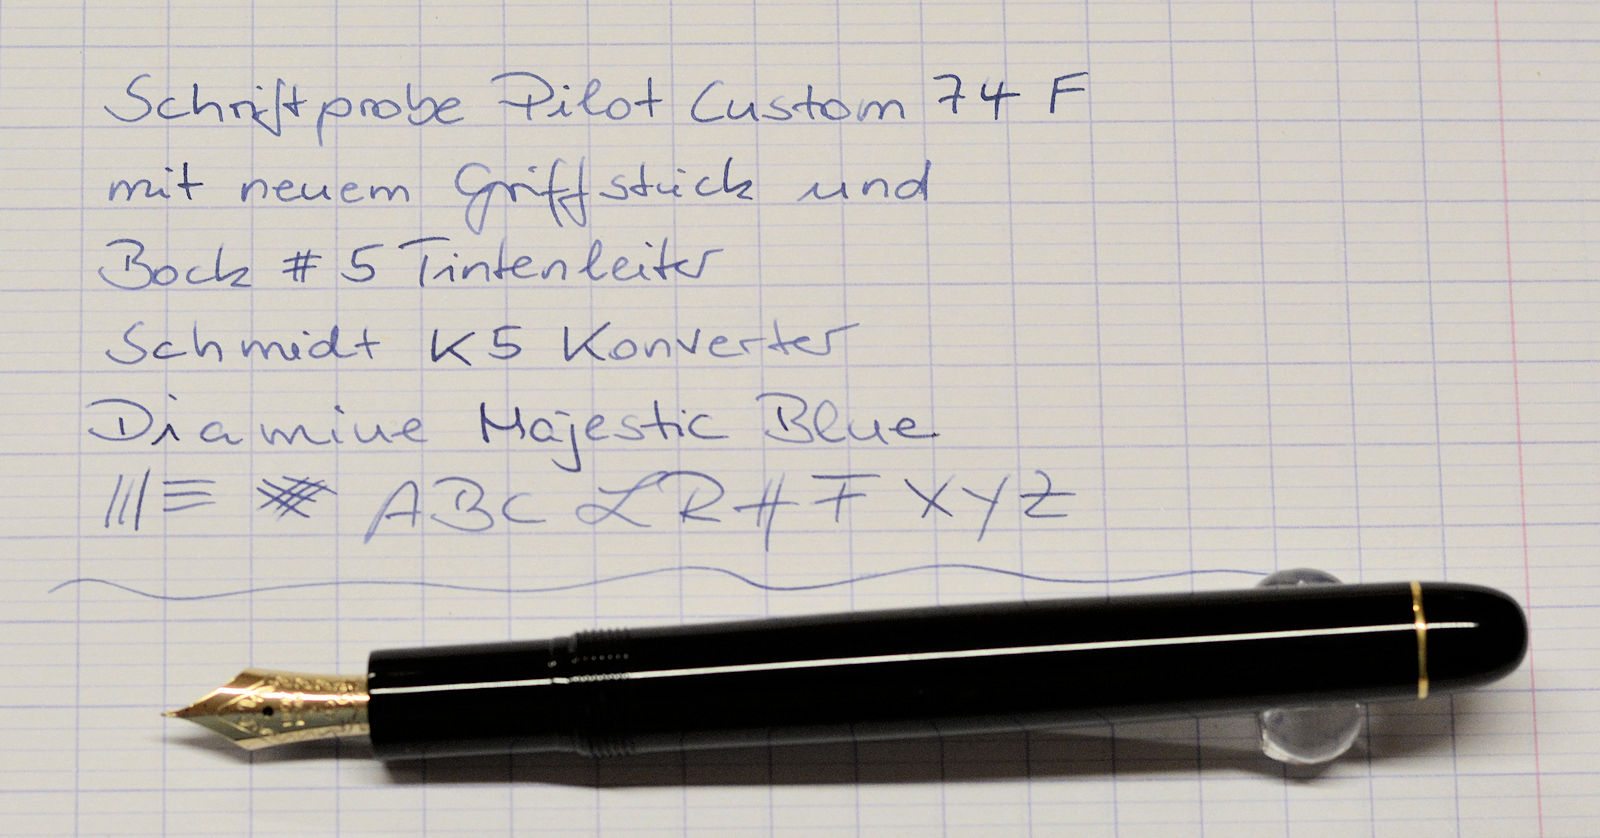 Schriftprobe Pilot Custom 74 F
mit neuem Griffstück und
Bock # 5 Tintenleiter
Schmidt K5 Konverter
Diamine Majestic Blue
ABC LRH F XYZ